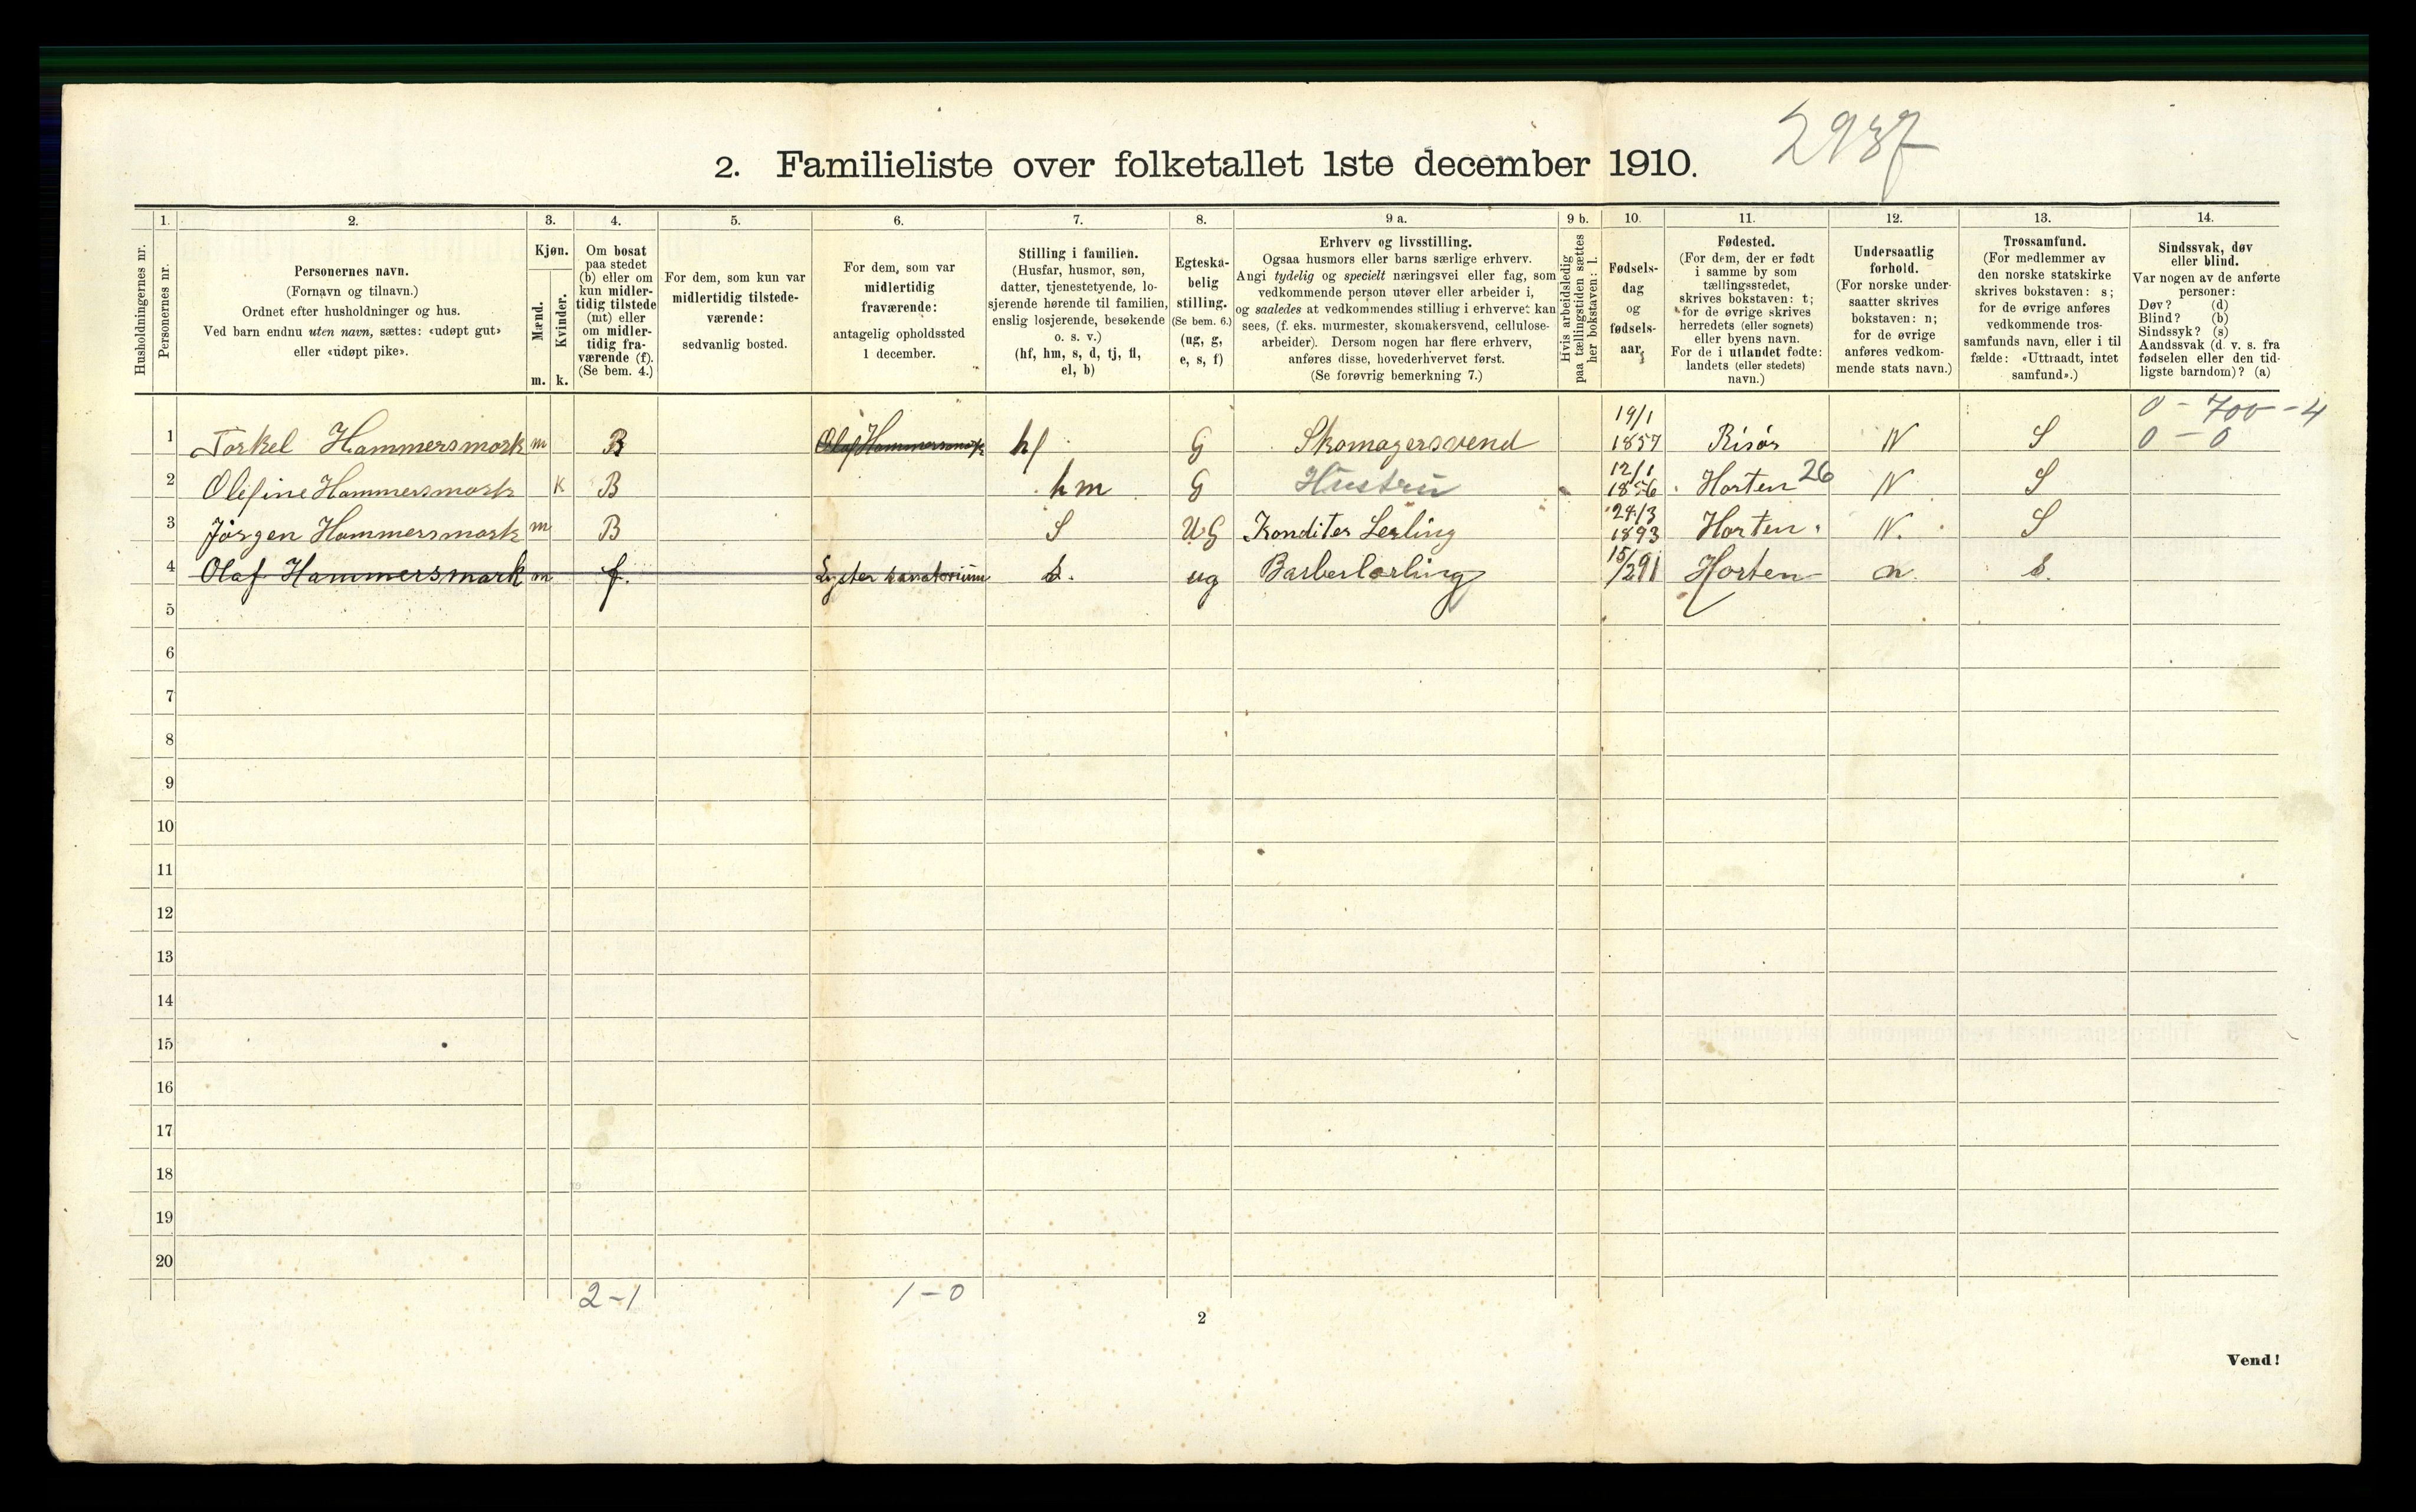 2937
2. Familieliste over folketallet 1ste december 1910.
1. 2. 3. 4. 5. 6. 7. 8. 9 a. 9 b. 10. 11. 12. 13. 14.
Husholdningernes nr.
Personernes nr.
Personernes navn.
(Fornavn og tilnavn.)
Ordnet efter husholdninger og hus.
Ved barn endnu uten navn, sættes: «udøpt gut»
eller «udøpt pike».
Kjøn.
Mænd.
Kvinder.
m. k.
Om bosat
paa stedet
(b) eller om
kun midler-
tidig tilstede
(mt) eller
om midler-
tidig fra-
værende (f).
(Se bem. 4.)
For dem, som kun var
midlertidig tilstede-
værende:
sedvanlig bosted.
For dem, som var
midlertidig
fraværende:
antagelig opholdssted
1 december.
Stilling i familien.
(Husfar, husmor, søn,
datter, tjenestetyende, lo-
sjerende hørende til familien,
enslig losjerende, besøkende
o. s. v.)
(hf, hm, s, d, tj, fl,
el, b)
Egteska-
belig
stilling.
(Se bem. 6.)
(ug, g,
e, s, f)
Erhverv og livsstilling.
Ogsaa husmors eller barns særlige erhverv.
Angi tydelig og specielt næringsvei eller fag, som
vedkommende person utøver eller arbeider i,
og saaledes at vedkommendes stilling i erhvervet kan
sees, (f. eks. murmester, skomakersvend, cellulose-
arbeider). Dersom nogen har flere erhverv,
anføres disse, hovederhvervet først.
(Se forøvrig bemerkning 7.)
Hvis arbeidsledig
paa tællingstiden sættes
her bokstaven: l.
Fødsels-
dag
og
fødsels-
aar.
Fødested.
(For dem, der er født
i samme by som
tællingsstedet,
skrives bokstaven: t;
for de øvrige skrives
herredets (eller sognets)
eller byens navn.
For de i utlandet fødte:
landets (eller stedets)
navn.)
Undersaatlig
forhold.
(For norske under-
saatter skrives
bokstaven: n;
for de øvrige
anføres vedkom-
mende stats navn.)
Trossamfund.
(For medlemmer av
den norske statskirke
skrives bokstaven: s;
for de øvrige anføres
vedkommende tros-
samfunds navn, eller i til
fælde: «Uttraadt, intet
samfund».)
Sindssvak, døv
eller blind.
Var nogen av de anførte
personer:
Døv? (d)
Blind? (b)
Sindssyk? (s)
Aandssvak (d. v. s. fra
fødselen eller den tid-
ligste barndom)? (a)
19/1 0 - 700 - 4
1 Torkel Hammersmark m B Olaf Hammersmark hf G Skomagersvend 1857 Risør N S 0 - 0
12/1
2 Olefine Hammersmark K B hm G Hustru 1856 Horten 26 N S
24/3
3 Jørgen Hammersmark m B S UG Konditer Lerling 1893 Horten N. S
4 Olaf Hammersmark m f. Lyster sanatorium s. ug Barberlærling 15/2 91 Horten n. s.
5
6
7
8
9
10
11
12
13
14
15
16
17
18
19
20
2-1 1-0
2
Vend!